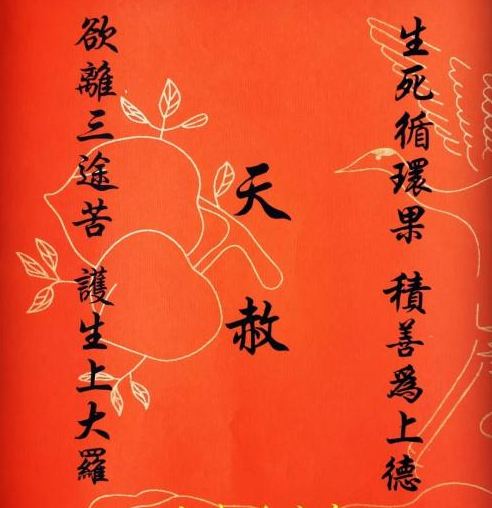 生死循環果 積善爲上德
天赦
欲離三途苦 護生上大羅